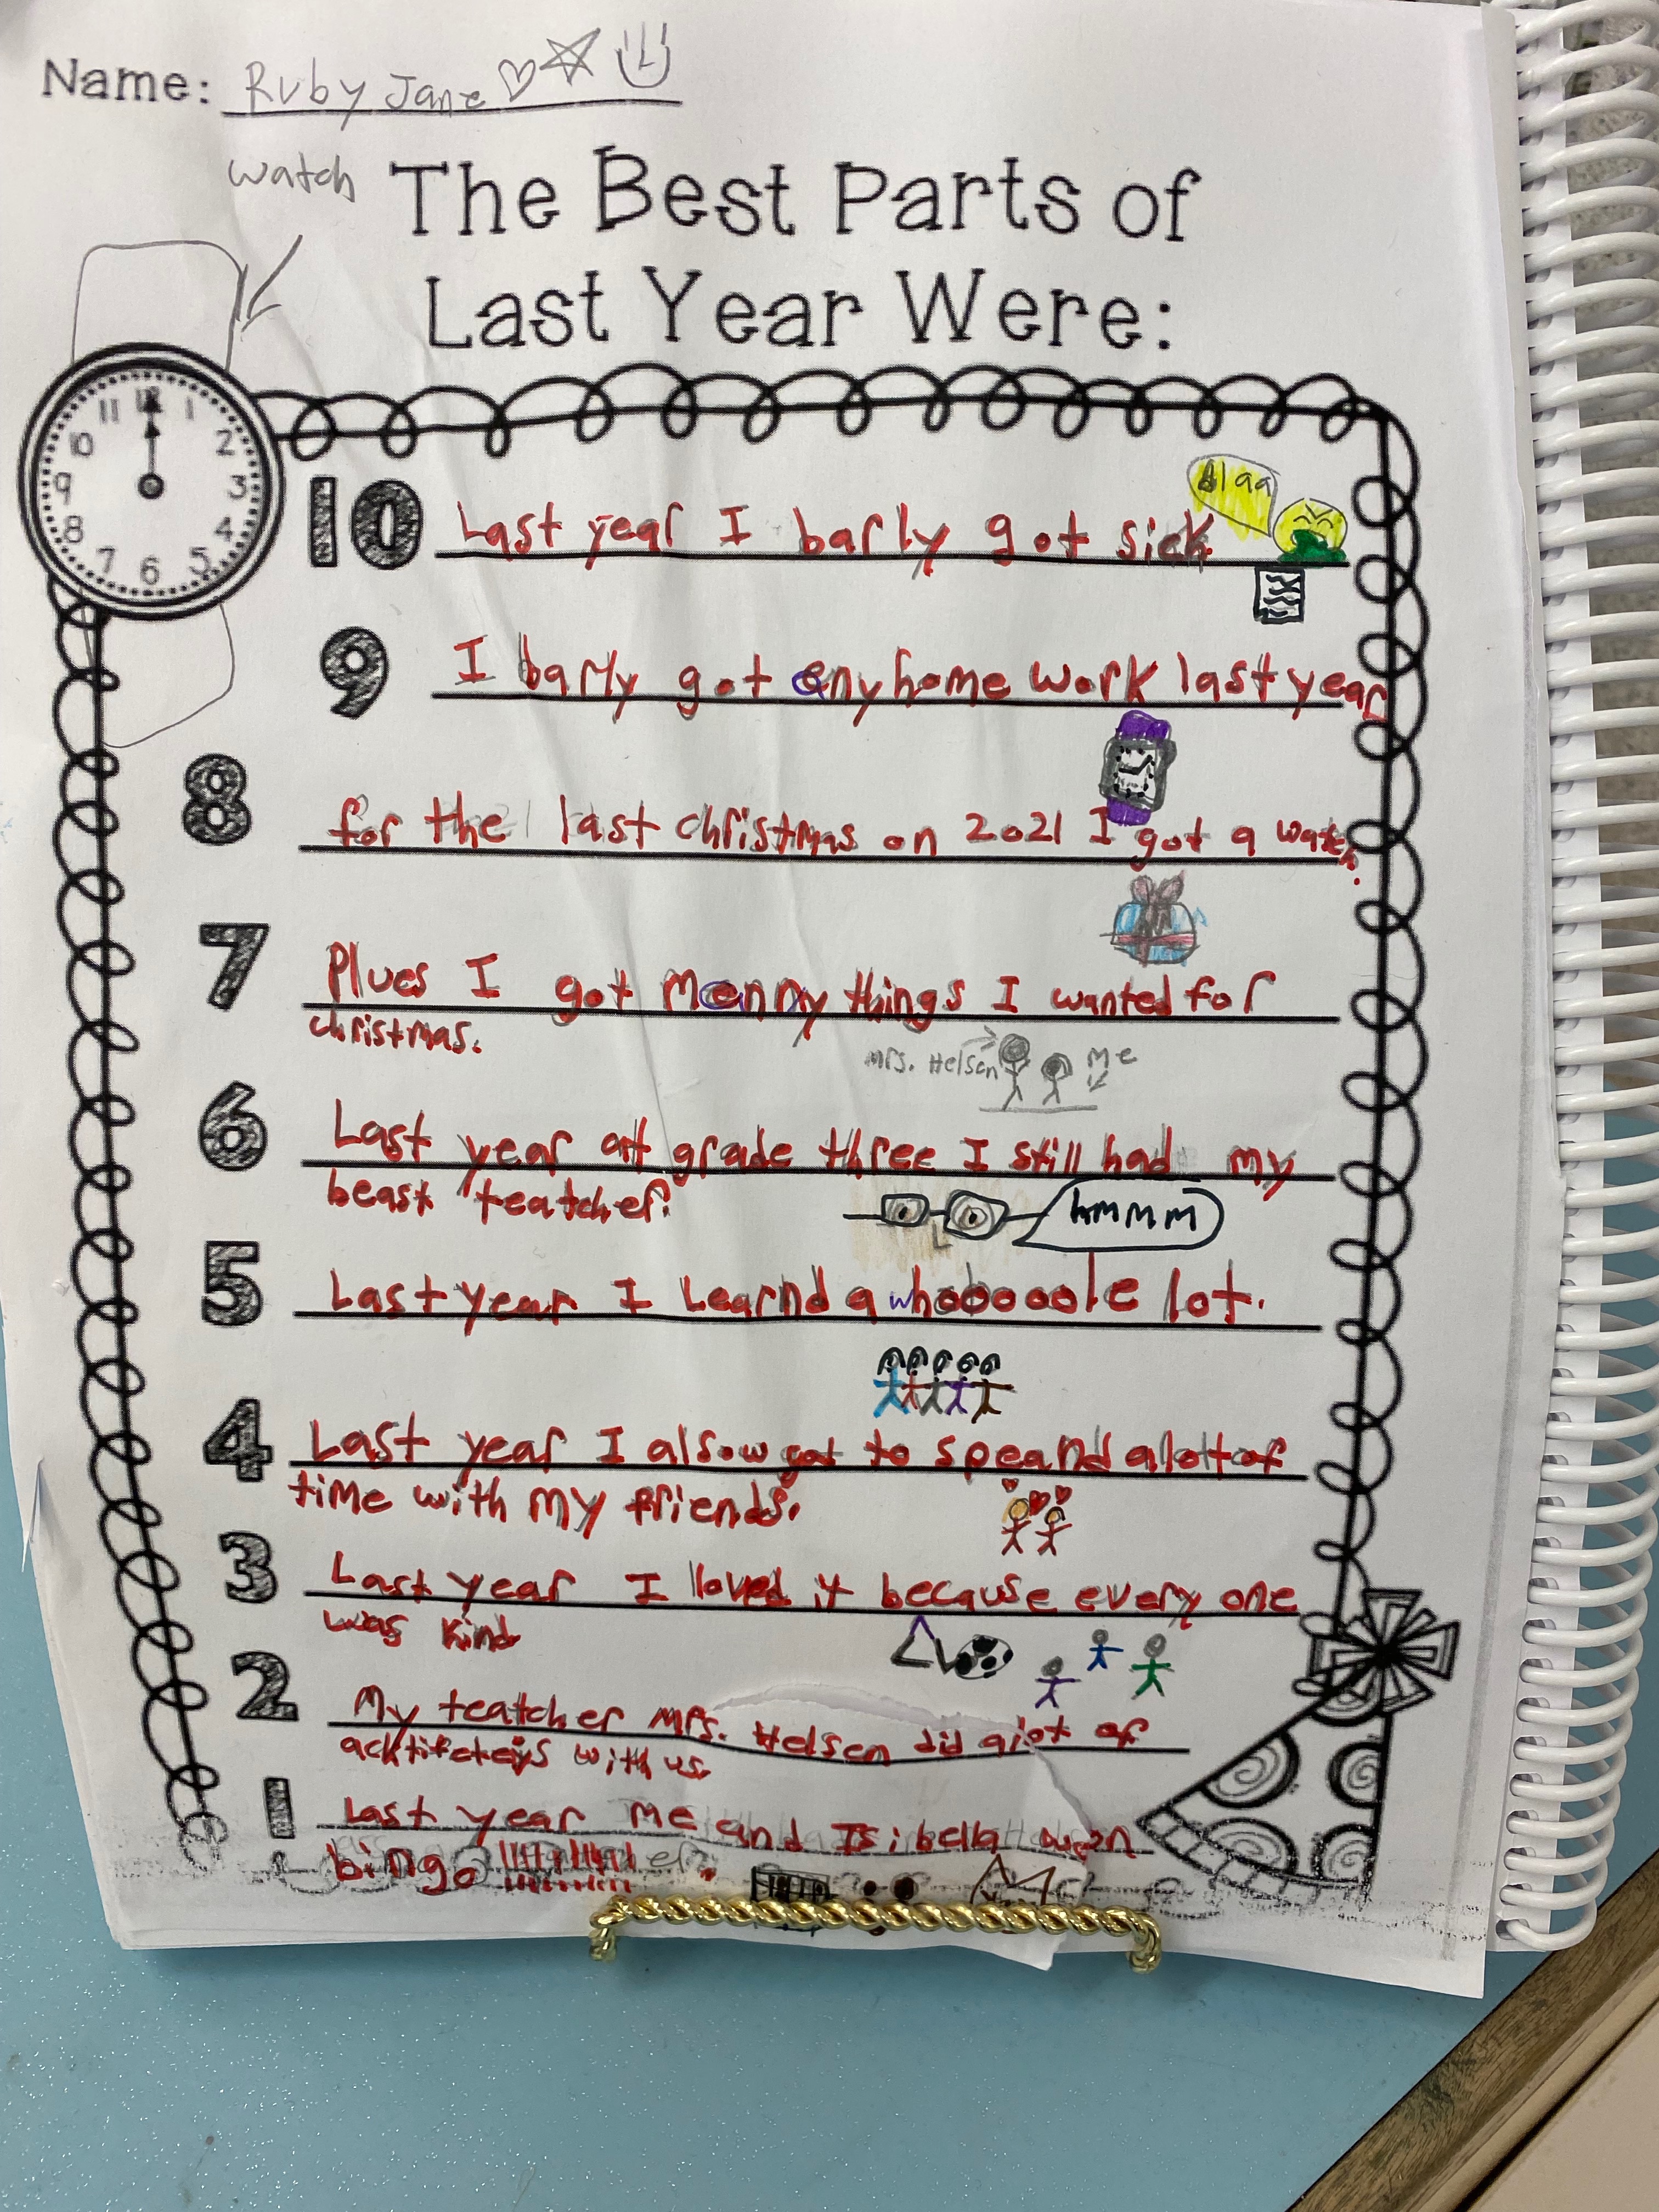 Name: Ruby Jane
watch
The Best Parts of
Last Year Were:
11 12 1
10 2
9 3
8 4
7 6 5
Blaa
10 Last year I barly got sick
9 I barly got eny home work last year
8 for the last christmas on 2021 I got a watch.
7 Plues I got menny things I wanted for
christmas.
Mrs. Helsen Me
6 Last year at grade three I still had my
beast teatcher.
hmmm
5 Last year I Learnd a whoooooole lot.
4 Last year I alsow got to speand alot of
time with my friends.
3 Last year I loved it because every one
was kind
2 My teatcher Mrs. Helsen did alot of
with us
1 Last year me and Isibella
bingo